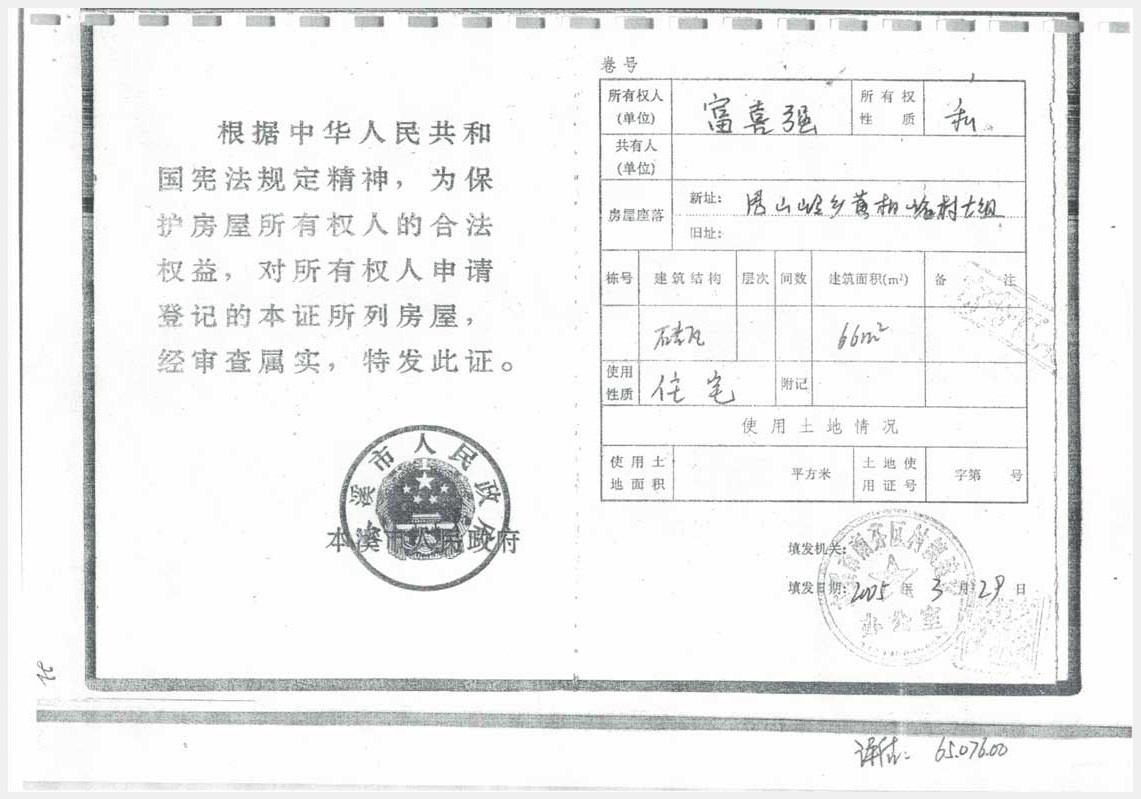 根据中华人民共和
国宪法规定精神，为保
护房屋所有权人的合法
权益，对所有权人申请
登记的本证所列房屋，
经审查属实，特发此证。
市人民政
本溪市人民政府
卷号
所有权人
(单位)
富喜强
所有权
性质
私
共有人
(单位)
房屋座落
新址：
旧址：
栋号 建筑结构 层次 间数 建筑面积(m²) 备注
66m²
使用
性质
住宅
附记
使用土地情况
使用土
地面积
平方米
土地使
用证号
字第 号
填发机关：
填发日期：2005年3月29日
办公室
评估：65.076.00